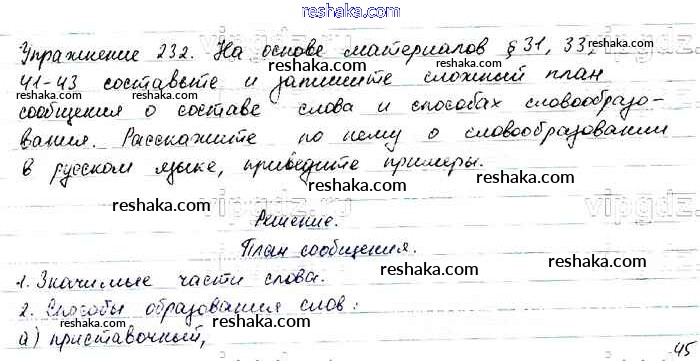 reshaka.com
Упражнение 232. На основе материалов § 31, 33,
41-43 составьте и запишите сложный план
сообщения о составе слова и способах словообразо-
вания. Расскажите по нему о словообразовании
в русском языке, приведите примеры.
Решение.
План сообщения.
1. Значимые части слова.
2. Способы образования слов:
а) приставочный,
45
reshaka.com reshaka.com reshaka.com
reshaka.com reshaka.com
reshaka.com reshaka.com reshaka.com
reshaka.com reshaka.com
reshaka.com reshaka.com reshaka.com
reshaka.com
vipgdz.
vipgdz